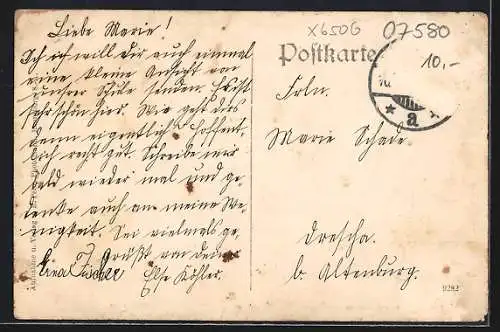 Liebe Marie!
Ich will Dir auch einmal
eine kleine Ansicht von
unsrer Schule senden. Es ist
sehr schön hier. Wie geht es Dir
denn eigentlich? Hoffent-
lich recht gut. Schreibe mir
bald wieder mal und ge-
denke auch an meine We-
nigkeit. Sei vielmals ge-
grüßt von deiner
Else Köhler.
Lina Fischer
X6506
07580
10,-
Postkarte
a
Frln.
Marie Schade
Drescha.
b Altenburg.
9282